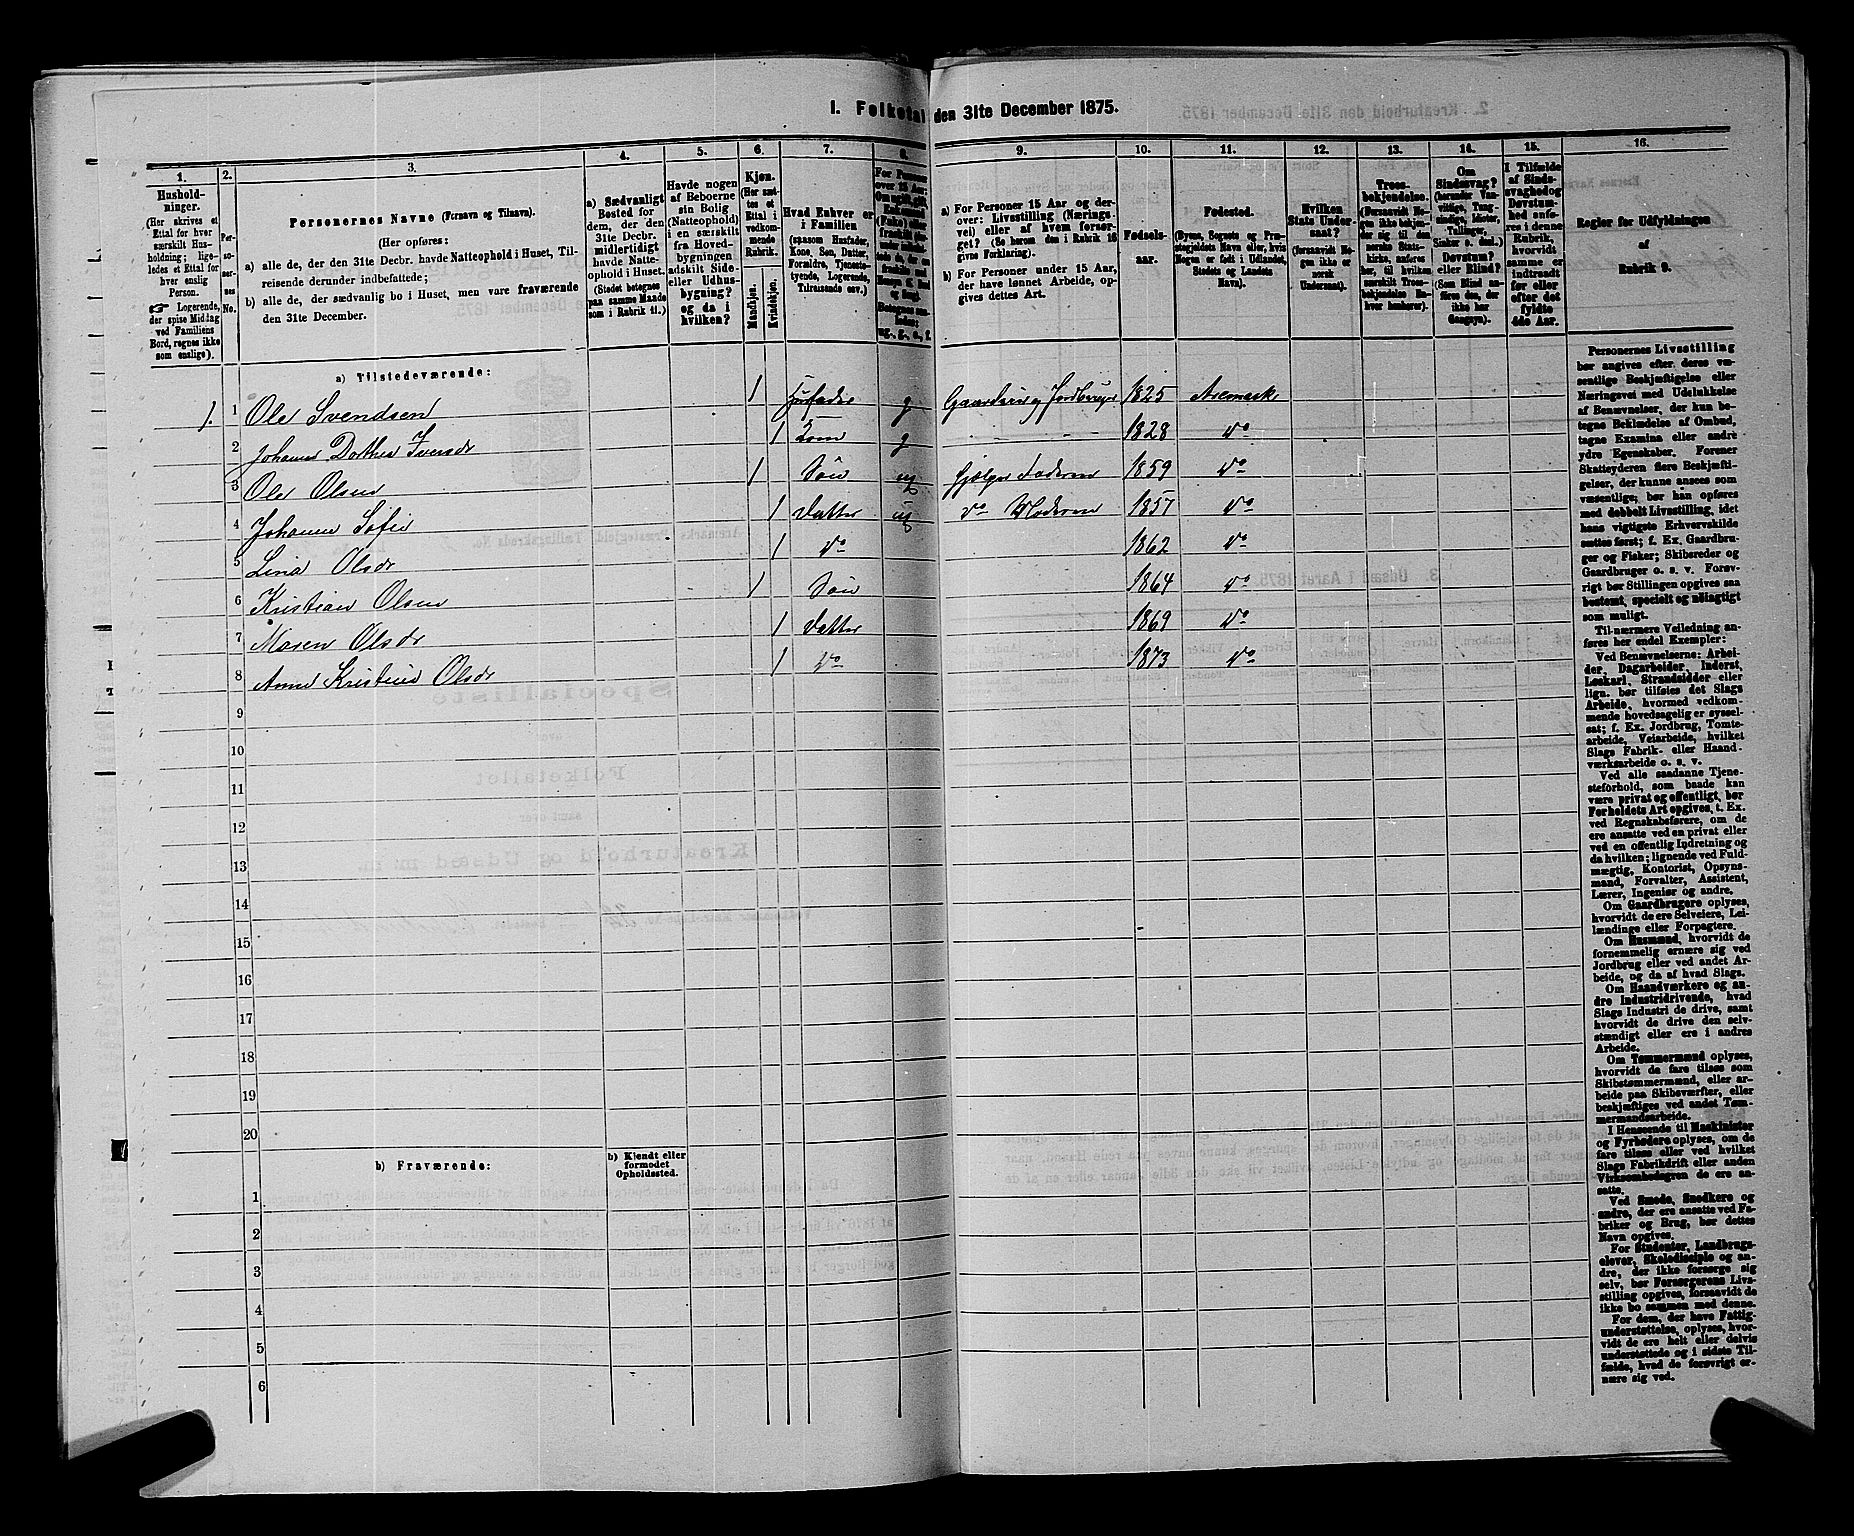 I. Folketal den 31te December 1875.
1.
Hushold-
ninger.
(Her skrives et
Ettal for hver
særskilt Hus-
holdning; lige-
ledes et Ettal for
hver enslig
Person.
Logerende,
der spise Middag
ved Familiens
Bord, regnes ikke
som enslige).
2.
Per-
so-
ner-
nes
No.
3.
Personernes Navne (Fornavn og Tilnavn).
(Her opføres:
a) alle de, der den 31te Decbr. havde Natteophold i Huset, Til-
reisende derunder indbefattede;
b) alle de, der sædvanlig bo i Huset, men vare fraværende
den 31te December.
4.
a) Sædvanligt
Bosted for
dem, der den
31te Decbr.
midlertidigt
havde Natte-
ophold i Huset.
(Stedet betegnes
paa samme Maade
som i Rubrik 11.)
5.
Havde nogen
af Beboerne
sin Bolig
(Natteophold)
i en særskilt
fra Hoved-
bygningen
adskilt Side-
eller Udhus-
bygning?
og da i
hvilken?
6.
Kjøn.
(Her sæt-
tes et
Ettal i
vedkom-
mende
Rubrik.
Mandkjøn.
Kvindekjøn.
7.
Hvad Enhver er
i Familien
(saasom Husfader,
Kone, Søn, Datter,
Forældre, Tjeneste-
tyende, Logerende,
Tilreisende osv.)
8.
9.
a) For Personer 15 Aar og der-
over: Livsstilling (Nærings-
vei) eller af hvem forsør-
get? (Se herom den i Rubrik 16
givne Forklaring).
b) For Personer under 15 Aar,
der have lønnet Arbeide, op-
gives dettes Art.
10.
Fødsels-
aar.
11.
Fødested.
(Byens, Sognets og Præ-
stegjeldets Navn eller, hvis
Nogen er født i Udlandet,
Stedets og Landets
Navn).
12.
Hvilken
Stats Under-
saat?
(forsaavidt No-
gen ikke er
norsk
Undersaat).
13.
Troes-
bekjendelse.
(Forsaavidt No-
gen ikke bekjen-
der sig til den
norske Stats-
kirke, anføres
her, til hvilken
særskilt Troes-
bekjendelse En-
hver henhører).
14.
Om
Sindssvag?
(herunder Van-
vittige, Tung-
sindige, Idioter,
Tullinger,
Sinker o. desl.)
Døvstum?
eller Blind?
(Som Blind an-
føres den, der
ikke har
Gangsyn).
15.
I Tilfælde
af Sinds-
svaghed og
Døvstum-
hed anfø-
res i denne
Rubrik,
hvorvidt
samme er
indtraadt
før eller
efter det
fyldte
4de Aar.
16.
Regler for Udfyldningen
af
Rubrik 9.
a) Tilstedeværende:
1. 1 Ole Svendsen 1 Husfader g Gaardeier og Jordbruger 1825 Aremark
2 Johanne Dorthea Iversdr 1 Kone g 1828 do
3 Ole Olsen 1 Søn ug hjelper Faderen 1859 do
4 Johanne Sofie 1 Datter ug do Moderen 1857 do
5 Lina Olsdr 1 do 1862 do
6 Kristian Olsen 1 Søn 1864 do
7 Maren Olsdr 1 Datter 1869 do
8 Anne Kristine Olsdr 1 do 1873 do
9
10
11
12
13
14
15
16
17
18
19
20
b) Fraværende:
b) Kjendt eller
formodet
Opholdssted.
1
2
3
4
5
6
Personernes Livsstilling
bør angives efter deres væ-
sentlige Beskjæftigelse eller
Næringsvei med Udelukkelse
af Benævnelser, der kun be-
tegne Beklædelse af Ombud,
tagne Examina eller andre
ydre Egenskaber. Forener
Skatteyderen flere Beskjæfti-
gelser, der kunne ansees som
væsentlige, bør han opføres
med dobbelt Livsstilling, idet
hans vigtigste Erhvervskilde
sættes først; f. Ex. Gaardbru-
ger og Fisker; Skibsreder og
Gaardbruger o. s. v. Forøv-
rigt bør Stillingen opgives saa
bestemt, specielt og nøiagtigt
som muligt.
Til nærmere Veiledning an-
føres her endel Exempler:
Ved Benævnelserne: Arbei-
der, Dagarbeider, Inderst,
Løskarl, Strandsidder eller
lign. bør tilføies det Slags
Arbeide, hvormed vedkom-
mende hovedsagelig er syssel-
sat; f. Ex. Jordbrug, Tomte-
arbeide, Veiarbeide, hvilket
Slags Fabrik- eller Haand-
værksarbeide o. s. v.
Ved alle saadanne Tjene-
steforhold, som baade kan
være privat og offentligt, bør
Forholdets Art opgives, t. Ex.
ved Regnskabsførere, om de
ere ansatte ved en privat eller
ved en offentlig Indretning og
da hvilken; lignende ved Fuld-
mægtig, Kontorist, Opsyns-
mand, Forvalter, Assistent,
Lærer, Ingeniør og andre.
Om Gaardbrugere oplyses,
hvorvidt de ere Selveiere, Lei-
lændinge eller Forpagtere.
Om Husmænd, hvorvidt de
fornemmelig ernære sig ved
Jordbrug eller ved andet Ar-
beide, og da af hvad Slags.
Om Haandværkere og an-
dre Industridrivende, hvad
Slags Industri de drive, samt
hvorvidt de drive den selv-
stændigt eller ere i andres
Arbeide.
Om Tømmermænd oplyses,
hvorvidt de fare tilsøs som
Skibstømmermænd, eller ar-
beide paa Skibsværfter, eller
beskjæftiges ved andet Tøm-
mermandsarbeide.
I Henseende til Maskinister
og Fyrbødere oplyses, om de
fare tilsøs eller ved hvilket
Slags Fabrikdrift eller anden
Virksomhed de ere an-
satte.
Ved Smede, Snedkere og
andre, der ere ansatte ved Fa-
briker og Brug, bør dettes
Navn opgives.
For Studenter, Landbrugs-
elever, Skoledisciple og an-
dre, der ikke forsørge sig
selv, bør Forsørgerens Livs-
stilling opgives, forsaavidt de
ikke bo sammen med denne.
For dem, der have Fattig-
understøttelse, oplyses, hvor-
vidt de ere helt eller delvis
understøttede og i sidste Til-
fælde, hvad de forøvrigt er-
nære sig ved.